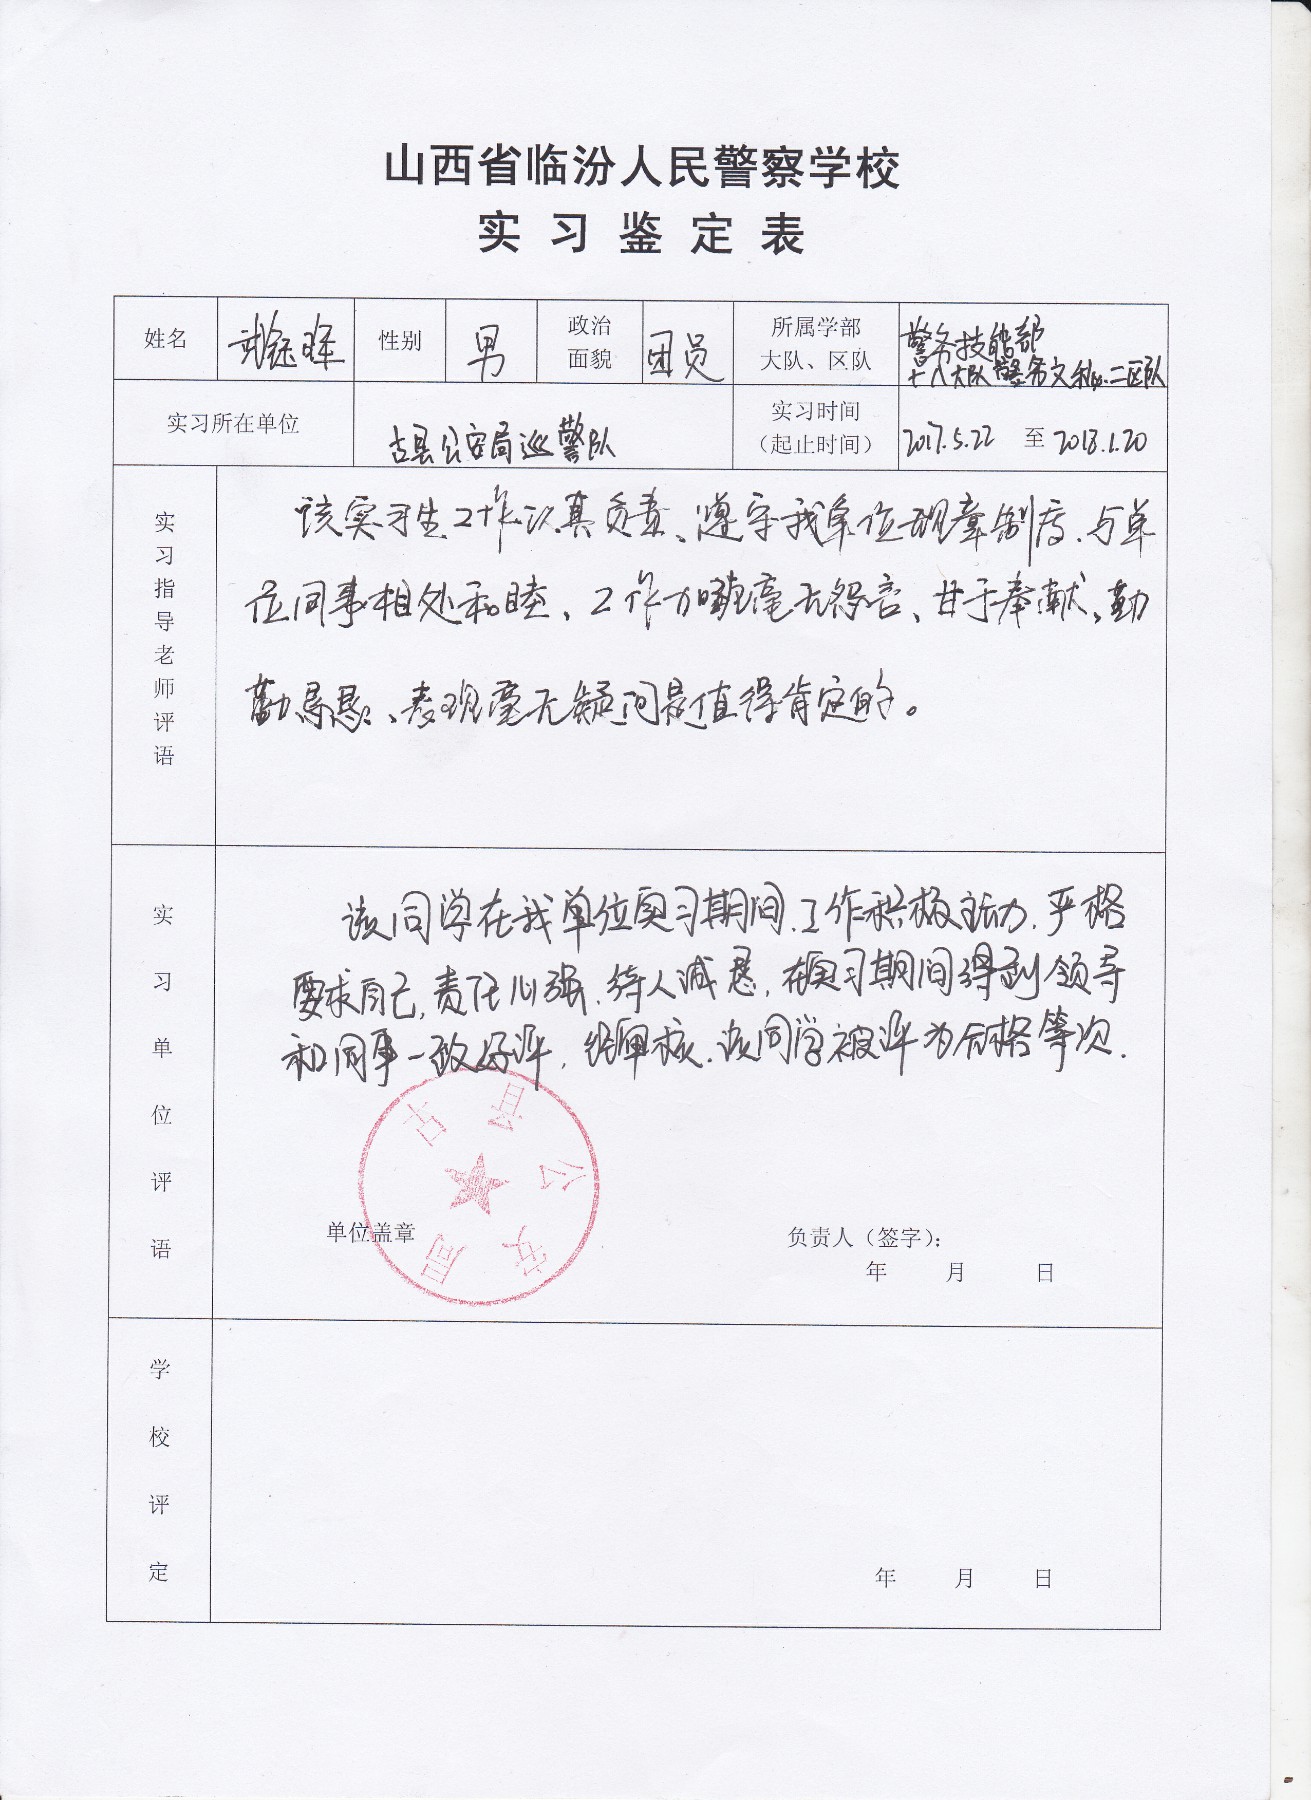 山西省临汾人民警察学校
实习鉴定表
姓名 性别 男 政治面貌 团员 所属学部大队、区队 警务技能部
十八大队警务文秘二区队
实习所在单位 古县公安局巡警队 实习时间(起止时间) 2017.5.22 至 2018.1.20
实习指导老师评语
该实习生工作认真负责、遵守我单位规章制度、与单
位同事相处和睦、工作方面毫无怨言、甘于奉献、勤
勤恳恳、表现毫无疑问是值得肯定的。
实习单位评语
该同学在我单位实习期间,工作积极主动,严格
要求自己,责任心强,待人诚恳,在实习期间得到领导
和同事一致好评,经审核,该同学被评为合格等次.
古县公安局
单位盖章 负责人(签字):
年 月 日
学校评定
年 月 日